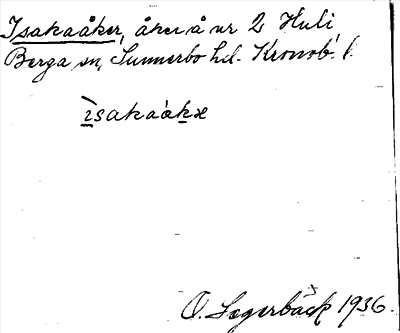 Isakaåker, åker å nr 2 Huli
Berga sn, Sunnerbo hd. Kronob. l.
ìsakaàkæ
O. Segerbäck 1936.